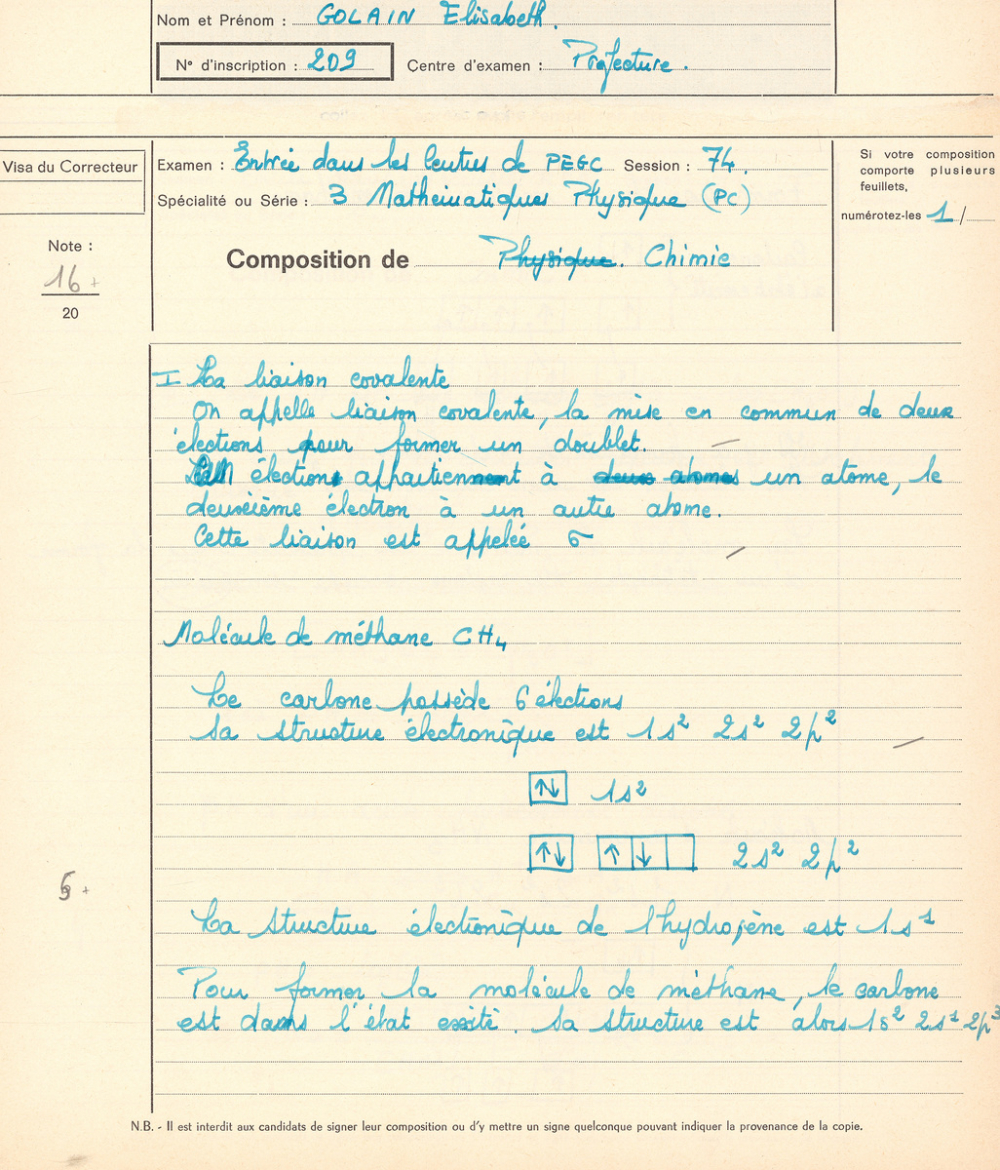 Nom et Prénom : GOLAIN Elisabeth.
N° d'inscription : 209 Centre d'examen : Préfecture.
Visa du Correcteur
Examen : Entrée dans les Centres de PEGC Session : 74.
Spécialité ou Série : 3 Mathématiques Physique (PC)
Si votre composition
comporte plusieurs
feuillets,
numérotez-les 1/
Note :
16+
20
Composition de Physique. Chimie
I La liaison covalente
On appelle liaison covalente, la mise en commun de deux
élections pour former un doublet.
électrons appartiennent à deux atomes un atome, le
deuxième électron à un autre atome.
Cette liaison est appelée σ
Molécule de méthane CH4
Le carbone possède 6 élections
Sa structure électronique est 1s² 2s² 2p²
↑↓ 1s²
↑↓ ↑ ↓ 2s² 2p²
5+
La structure électronique de l'hydrogène est 1s¹
Pour former la molécule de méthane, le carbone
est dans l'état exité. Sa structure est alors 1s² 2s¹ 2p³
N.B. - Il est interdit aux candidats de signer leur composition ou d'y mettre un signe quelconque pouvant indiquer la provenance de la copie.